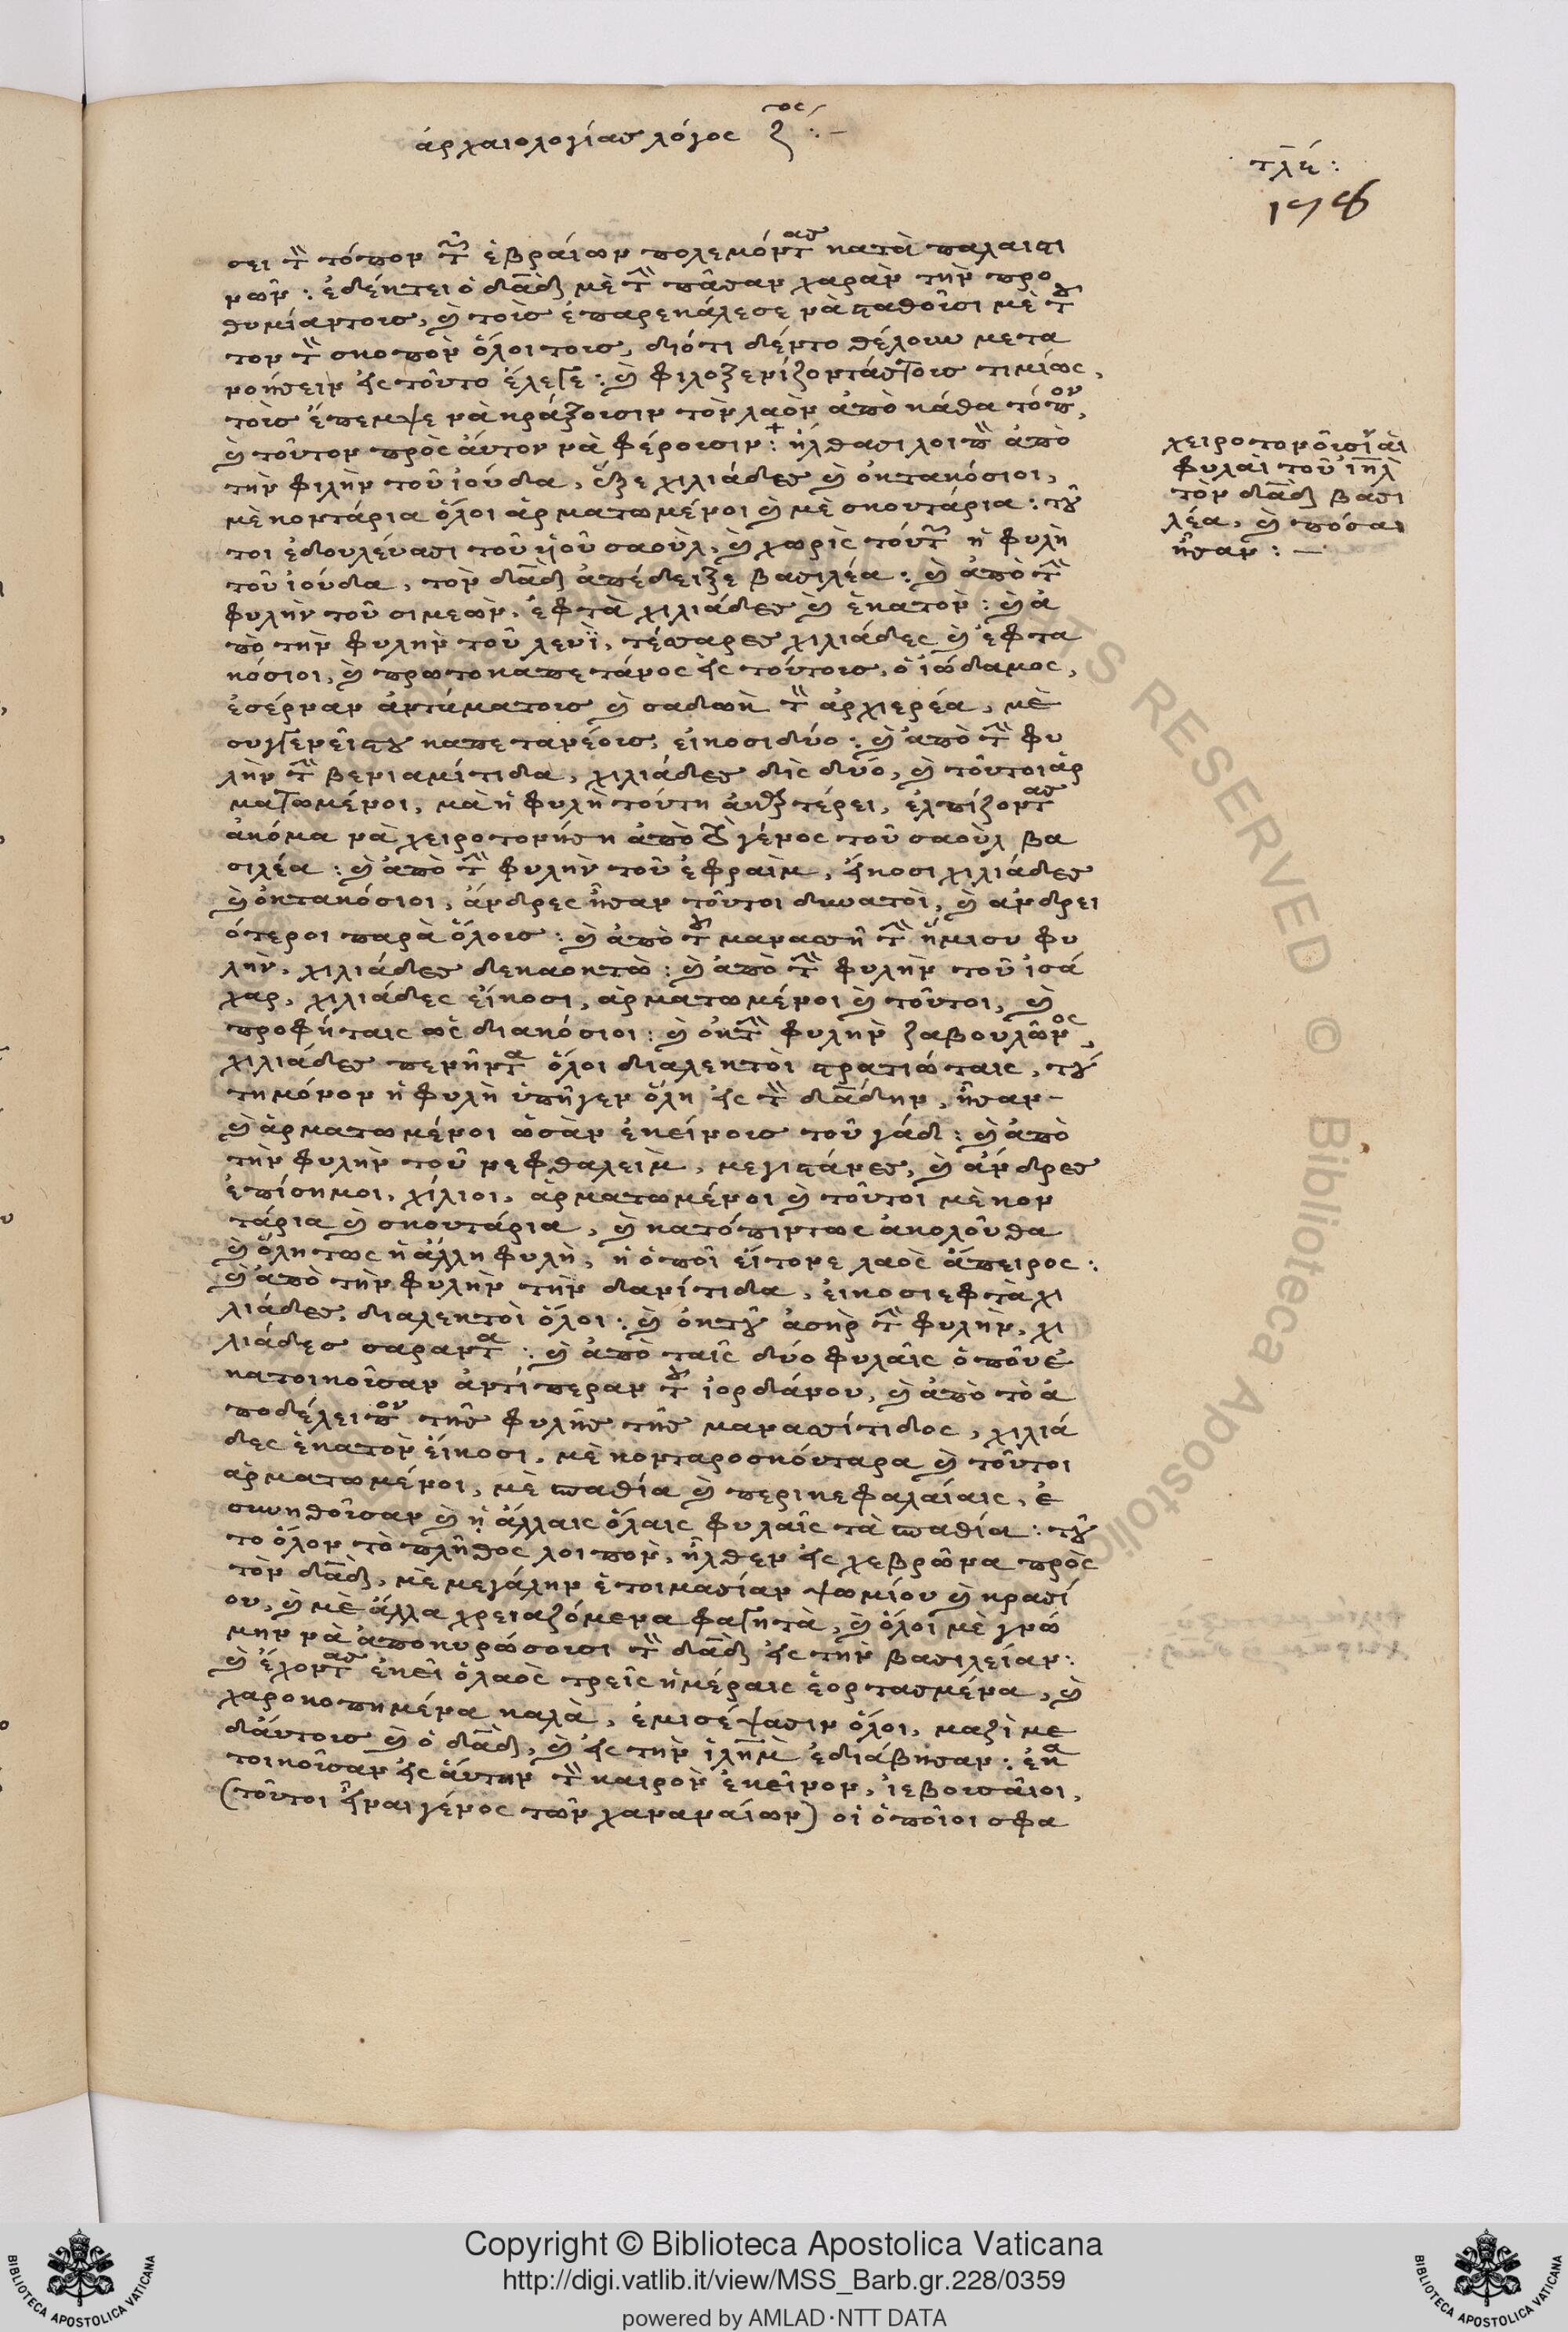 ἀρχαιολογίας λόγος ζ^{ος} :-
τλε :
178
σει τὸν τόπον τῶν ἑβραίων πολεμόντας κατὰ παλαιστι
νῶν : ἐδέκτει ὁ δᾱδ μὲ τὴν πᾶσαν χαρὰν τὴν προ
θυμίαν τοις, καὶ τοῖς ἐπαρεκάλεσε νὰ σταθοῦσι μὲ τοῦ
τον τὸν σκοπὸν ὅλοι τοις, διότι δὲν τὸ θέλουν μετα
νοήσειν εἰς τοῦτο ἔλεγε : καὶ φιλοξενίζοντάς τοις τιμίως,
τοῖς ἔπεμψε νὰ κράξοισιν τὸν λαὸν ἀπὸ κάθα τόπον,
καὶ τοῦτον πρὸς ἄυτον νὰ φέροισιν : + ἦλθασι λοιπὸν ἀπὸ
τὴν φιλὴν τοῦ ἰούδα, ἕξε χιλιάδες καὶ ὀκτακόσιοι,
μὲ κοντάρια ὅλοι ἁρματωμένοι καὶ μὲ σκουτάρια : τοῦ
τοι ἐδουλέυασι τοῦ ὑοῦ σαοὺλ, καὶ χωρὶς τούτων ἡ φυλὴ
τοῦ ἰούδα, τὸν δᾱδ ἀπέδειξε βασιλέα : καὶ ἀπὸ τὴν
φυλὴν τοῦ σιμεὼν, ἐφτὰ χιλιάδες καὶ ἑκατὸν : καὶ ἀ
πὸ τὴν φυλὴν τοῦ λευὶ, τέσσαρες χιλιάδες καὶ ἐφτα
κόσιοι, καὶ πρωτοκαπετάνος εἰς τούτοις, ὁ ἰώδαμος,
ἐσέρναν ἀντάματοις καὶ σαδωκ τὸν ἀρχιερέα, μὲ
συγγενεῖς του καπετανέοις, εἰκοσιδύο : καὶ ἀπὸ τὴν φυ
λὴν τὴν βενιαμίτιδα, χιλιάδες δὶς δυὸ, καὶ τοῦτοι ἁρ
ματωμένοι, μὰ ἡ φυλὴ τούτη ἀνξτέρει, ἐλπίζοντας
ἀκόμα νὰ χειροτονήση ἀπὸ τὸ γένος τοῦ σαοὺλ βα
σιλέα : καὶ ἀπὸ τὴν φυλὴν τοῦ ἐφραὶμ, εἴκοσι χιλιάδες
καὶ ὀκτακόσιοι, ἄνδρες ἦσαν τοῦτοι δυνατοὶ, καὶ ἀνδρει
ότεροι παρὰ ὅλοις : καὶ ἀπὸ τοῦ μανασσῆ τὴν ἥμισυ φυ
λὴν, χιλιάδες δεκαοκτὼ : καὶ ἀπὸ τὴν φυλὴν τοῦ ἰσά
χαρ, χιλιάδες εἴκοσι, ἁρματωμένοι καὶ τοῦτοι, καὶ
προφήταις ὡς διακόσιοι : καὶ ἐκ τὴν φυλὴν ζαβουλῶνος,
χιλιάδες πενῆντα ὅλοι διαλεκτοὶ στρατιώταις, τού
τη μόνον ἡ φυλὴ ὑπῆγεν ὅλη εἰς τὸν δᾱδην, ἦσαν -
καὶ ἁρματωμένοι ὡσὰν ἐκείνοις τοῦ γάδ : καὶ ἀπὸ
τὴν φυλὴν τοῦ νεφθαλεὶμ, μεγιστάνες, καὶ ἄνδρες
ἐπίσημοι, χίλιοι, ἁρματωμένοι καὶ τοῦτοι μὲ κον
τάρια καὶ σκουτάρια, καὶ κατόπιντως ἀκολοῦθα
καὶ ὅλη τως ἡ ἄλλη φυλὴ, ἡ ὁποῖ εἴτονε λαὸς ἄπειρος :
καὶ ἀπὸ τὴν φυλὴν τὴν δανίτιδα, εἰκοσιεφτὰ χι
λιάδες, διαλεκτοὶ ὅλοι : καὶ ἐκ τοῦ ἀσὴρ τὴν φυλὴν, χι
λιάδες σαραντα : καὶ ἀπὸ ταῖς δύο φυλαῖς ὁποῦ ἐ
κατοικοῖσαν ἀντίπεραν τοῦ ἰορδάνου, καὶ ἀπὸ τὸ ἀ
ποδέλειπον τῆς φυλῆς τῆς μανασσίτιδος, χιλιά
δες ἑκατὸν εἴκοσι, μὲ κονταροσκόυταρα καὶ τοῦτοι
ἁρματωμένοι, μὲ σπαθία καὶ περικεφαλαίαις, ἐ
συνηθοῖσαν καὶ ἡ ἄλλαις ὅλαις φυλαῖς τὰ σπαθία : τοῦ
το ὅλον τὸ πλῆθος λοιπὸν, ἦλθεν εἰς χεβρῶνα πρὸς
τὸν δᾱδ, μὲ μεγάλην ἑτοιμασίαν ψωμίου καὶ κρασί
ου, καὶ μὲ ἄλλα χρειαζόμενα φαγητὰ, καὶ ὅλοι μὲ γνώ
μην νὰ ἀποκυρώσοισι τὸν δᾱδ εἰς τὴν βασιλείαν :
καὶ ἔχοντας ἐκεῖ ὁ λαὸς τρεῖς ἡμέραις ἑορτασμένα, καὶ
χαροκοπημένα καλὰ, ἐμισέψασιν ὅλοι, μαζὶ με
δάυτοις καὶ ὁ δᾱδ, καὶ εἰς τὴν ἰλημ ἐδιάβησαν : ἐκα
τοικοῖσαν εἰς ἄυτην τὸν καιρὸν ἐκεῖνον, ἰεβουσαῖοι,
(τοῦτοι εἶναι γένος τῶν χαναναίων) οἱ ὁποῖοι σφα
χειροτονοῖσιν ἁι
φυλαὶ τοῦ ἰηλ
τὸν δᾱδ βασι
λέα, καὶ πόσαι
ἦσαν : —
RIGHTS RESERVED © Biblioteca Apostolica
Copyright © Biblioteca Apostolica Vaticana
http://digi.vatlib.it/view/MSS_Barb.gr.228/0359
powered by AMLAD·NTT DATA
BIBLIOTECA APOSTOLICA VATICANA
BIBLIOTECA APOSTOLICA VATICANA